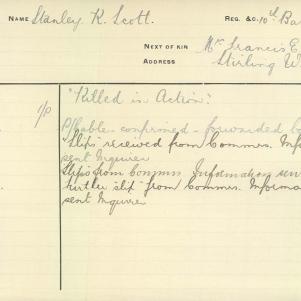 NAME Stanley R. Scott. REG. &C. 10th Ba
NEXT OF KIN Mr. Francis E
ADDRESS Stirling W
"Killed in Action".
1/p
P/Cable confirmed - forwarded b
Slips received from Commrs. Info
sent Inquirer
Slips from Commrs. Information sen
further slip from Commrs. Informa
sent Inquirer